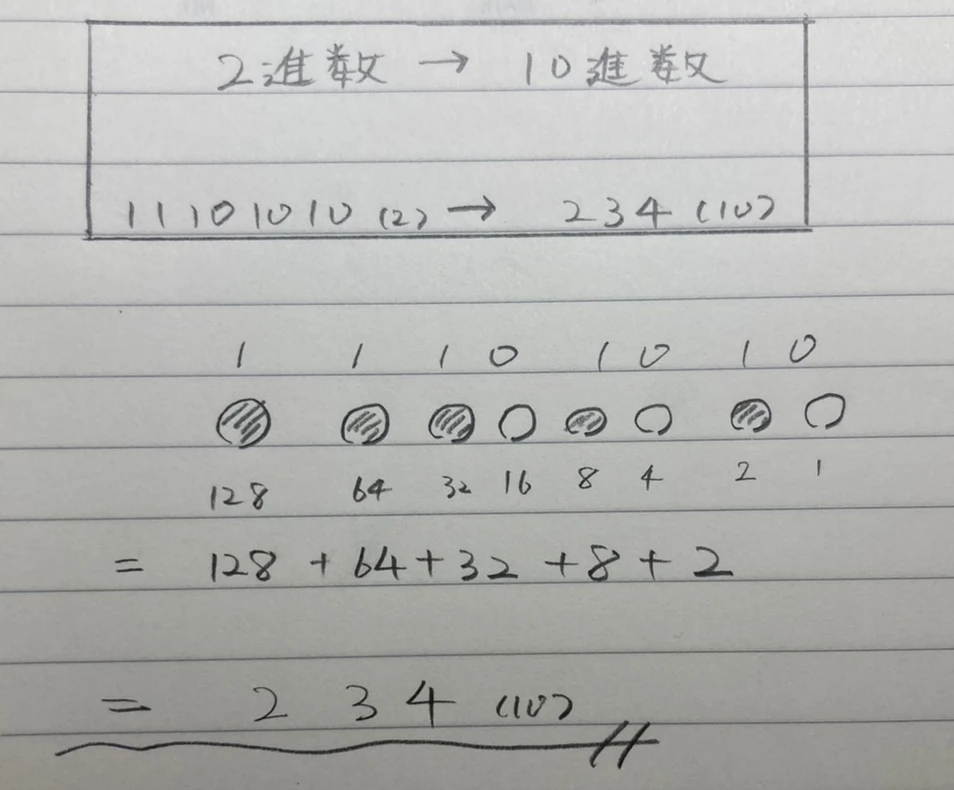 2進数 → 10進数
11101010 (2) → 234 (10)
1 1 1 0 1 0 1 0
128 64 32 16 8 4 2 1
= 128 + 64 + 32 + 8 + 2
= 234 (10)